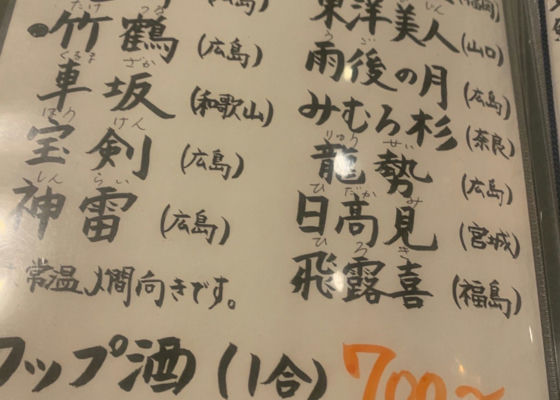 東洋美人(山口)
雨後の月(広島)
みむろ杉(奈良)
龍勢(広島)
日高見(宮城)
飛露喜(福島)
竹鶴(広島)
車坂(和歌山)
宝剣(広島)
神雷(広島)
常温、燗向きです。
コップ酒(1合)700〜